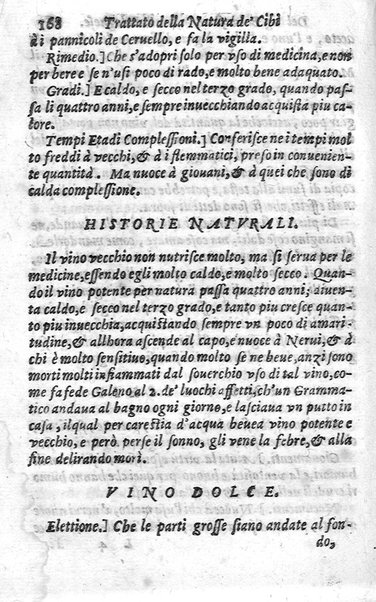 168 Trattato della Natura de' Cibi
di pannicoli de Ceruello, e fa la vigilla.
Rimedio.] Che s'adopri solo per vso di medicina, e non
per bere e se n'usi poco di rado, e molto bene adaquato.
Gradi.] E caldo, e secco nel terzo grado, quando pas-
sa li quattro anni, e sempre inuecchiando acquista piu ca-
lore.
Tempi Etadi Complessioni.] Conferisce ne i tempi mol
to freddi à vecchi, & à i flemmatici, preso in conuenien-
te quantità. Ma nuoce à giouani, & à quei che sono di
calda complessione.
HISTORIE NATVRALI.
Il vino vecchio non nutrisce molto, ma si serua per le
medicine, essendo egli molto caldo, e molto secco. Quan-
do il vino potente per natura passa quattro anni; diuen-
ta caldo, e secco nel terzo grado, e tanto piu cresce quan-
to piu inuecchia, acquistando sempre vn poco di amari-
tudine, & allhora ascende al capo, e nuoce à Nerui, & à
chi è molto sensitiuo, quando molto se ne beue, anzi sono
morti molti infiammati dal souerchio vso di tal vino, co-
me fa fede Galeno al 2. de' luochi affetti, ch'un Gramma-
tico andaua al bagno ogni giorno, e lasciaua vn putto in
casa, il qual per carestia d'acqua beuea vino potente e
vecchio, e però perse il sonno, gli vene la febre, & alla
fine delirando morì.
VINO DOLCE.
Elettione.] Che le parti grosse siano andate al fon-
do,